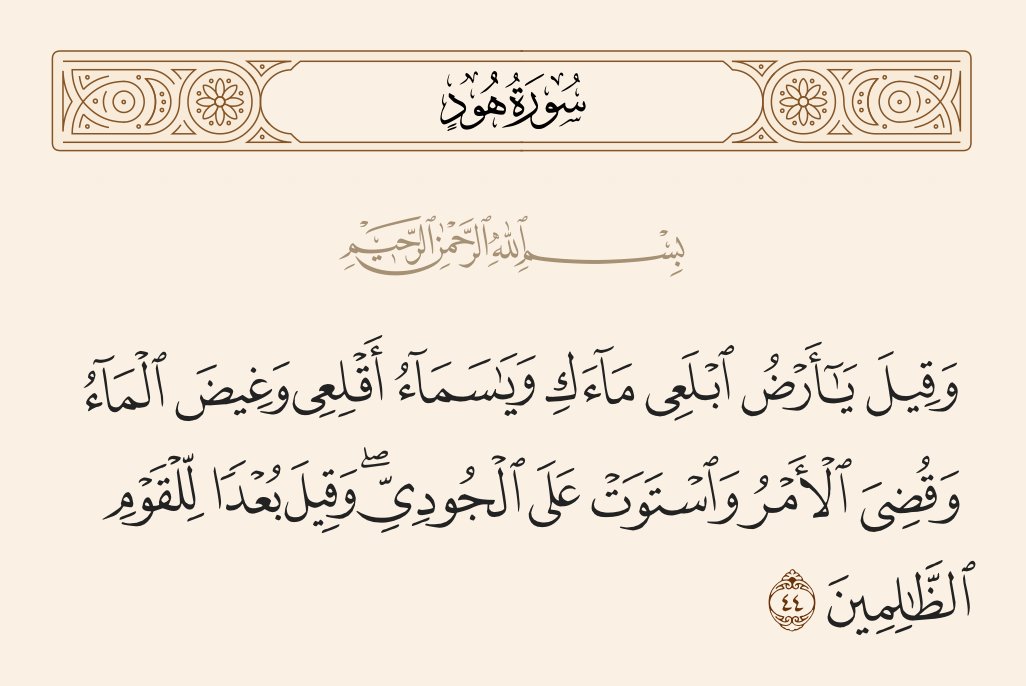 سُورَةُ هُودٍ
بِسْمِ ٱللَّهِ ٱلرَّحْمَٰنِ ٱلرَّحِيمِ
وَقِيلَ يَـٰٓأَرْضُ ٱبْلَعِى مَآءَكِ وَيَـٰسَمَآءُ أَقْلِعِى وَغِيضَ ٱلْمَآءُ
وَقُضِىَ ٱلْأَمْرُ وَٱسْتَوَتْ عَلَى ٱلْجُودِىِّ ۖ وَقِيلَ بُعْدًا لِّلْقَوْمِ
ٱلظَّـٰلِمِينَ ٤٤